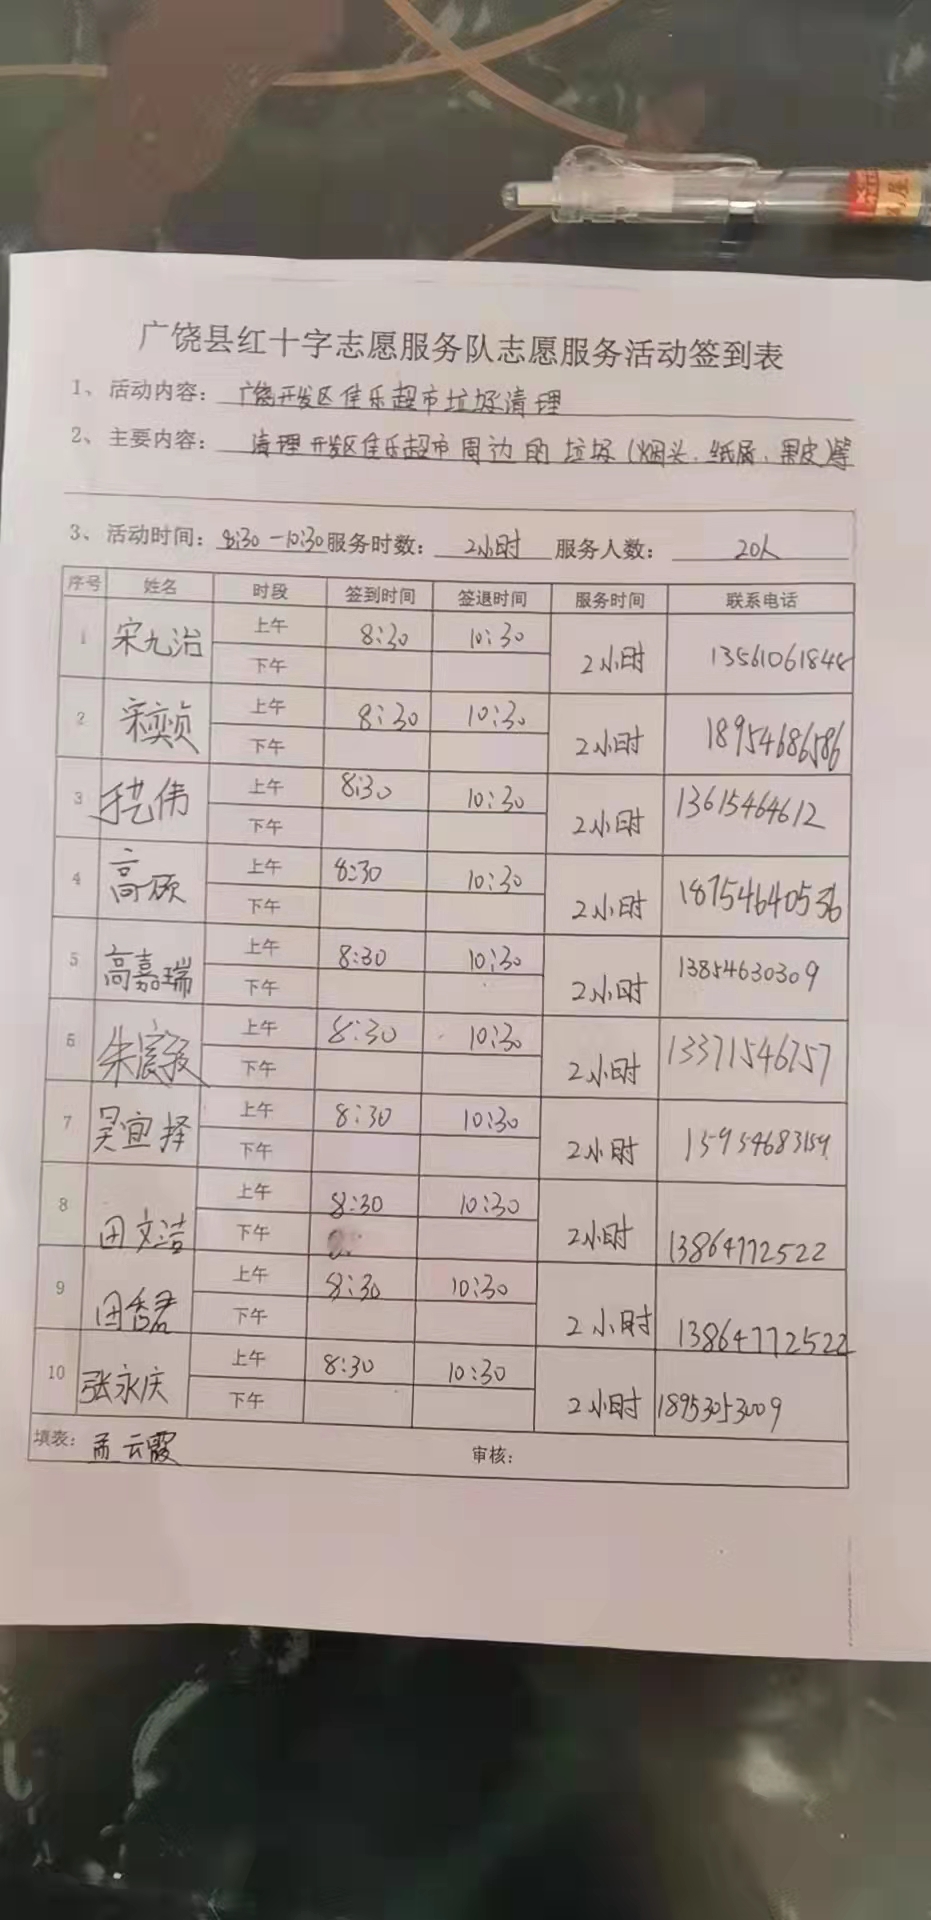 广饶县红十字志愿服务队志愿服务活动签到表
1、活动内容：广饶开发区佳乐超市垃圾清理
2、主要内容：清理开发区佳乐超市周边的垃圾(烟头、纸屑、果皮)等
3、活动时间：8:30-10:30 服务时数：2小时 服务人数：20人
序号 姓名 时段 签到时间 签退时间 服务时间 联系电话
1 宋九治 上午 8:30 10:30 2小时 13561061848
下午
2 宋奕贞 上午 8:30 10:30 2小时 18954686586
下午
3 伟 上午 8:30 10:30 2小时 13615464612
下午
4 高硕 上午 8:30 10:30 2小时 18754640536
下午
5 高嘉瑞 上午 8:30 10:30 2小时 13854630309
下午
6 朱宸毅 上午 8:30 10:30 2小时 13371546757
下午
7 吴宜择 上午 8:30 10:30 2小时 15954683159
下午
8 田文洁 上午 8:30 10:30 2小时 13864772522
下午
9 田香君 上午 8:30 10:30 2小时 13864772522
下午
10 张永庆 上午 8:30 10:30 2小时 18953053009
下午
填表：孟云霞 审核：